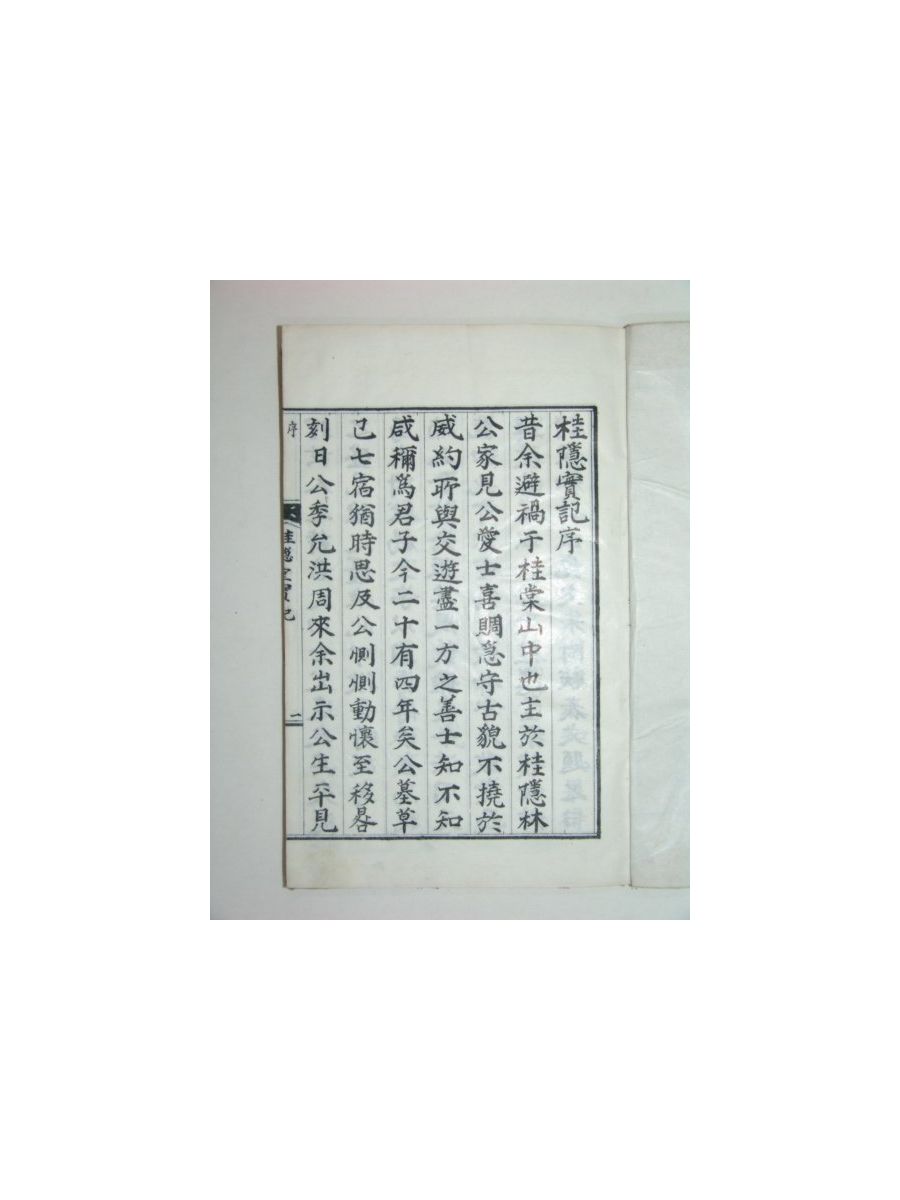 桂隱實記序
昔余避禍于桂棠山中也主於桂隱林
公家見公愛士喜賙急守古貌不撓於
威約所與交遊盡一方之善士知不知
咸稱爲君子今二十有四年矣公墓草
已七宿猶時思及公惻惻動懷至移晷
刻日公季允洪周來余出示公生平見
序
桂隱实實記
一